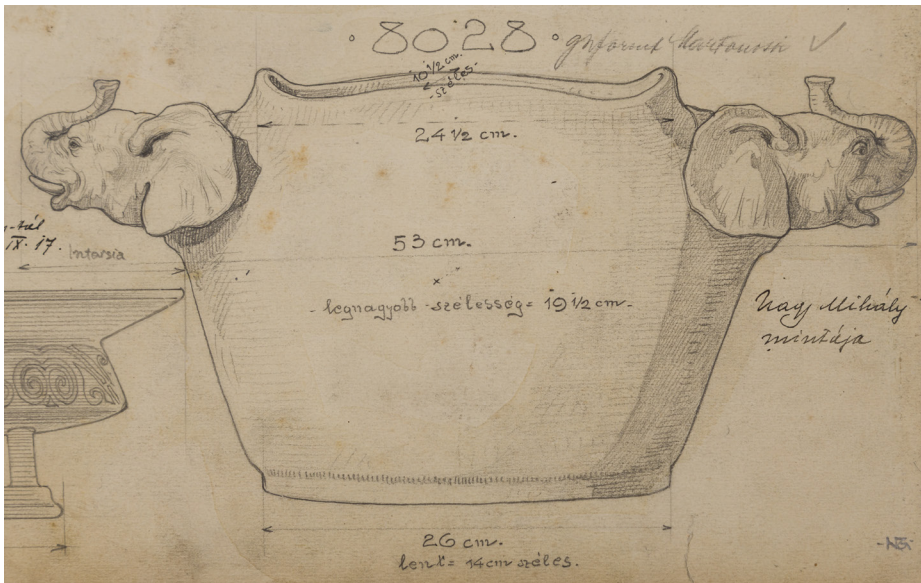 8028
10 1/2 cm.
széles.
24 1/2 cm.
-tál
IX. 17.
Intarsia
53 cm.
legnagyobb szélesség = 19 1/2 cm.
Nagy Mihály
mintája
26 cm.
lent = 14 cm széles.